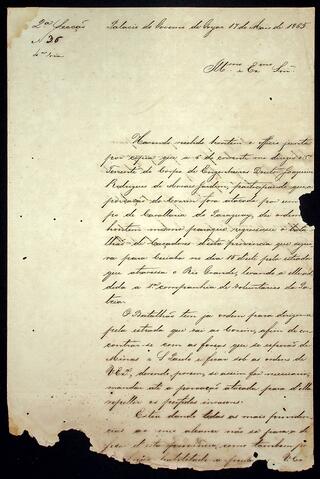 2ª Secção Palacio do Governo de Goyaz 17 de Maio de 1865
N 36
Illmo e Exmo Snr
Havendo recebido hontem o officio junto
por copia que a 6 do corrente me dirigio o 1º
Tenente do Corpo de Engenheiros Joaquim
Rodrigues de Moraes Jardim, participando que a
povoação do Coxim fora atacada por um
po de Cavallaria do Paraguay, dei ordem
hontem mesmo para que o Bata
lhão de Caçadores desta provincia que
va para Cuiabá no dia 18 pela estrada
que atravessa o Rio Grande, levando
dida a 1ª companhia de Voluntarios da Pa
tria.
O Batalhão tem já ordem para dirigir-se
pela estrada que vai ao Coxim, afim de en
contrar-se com as forças que se esperão de
Minas e S. Paulo e ficar sob as ordens de
V Exª, devendo porem, se assim for necessario,
marchar até a povoação atacada para d'ella
repellir os perfidos invasores.
Estou dando todas as mais providen
cias ao meu alcance não só para a
desta provincia, como tambem
habilitado a V Ex